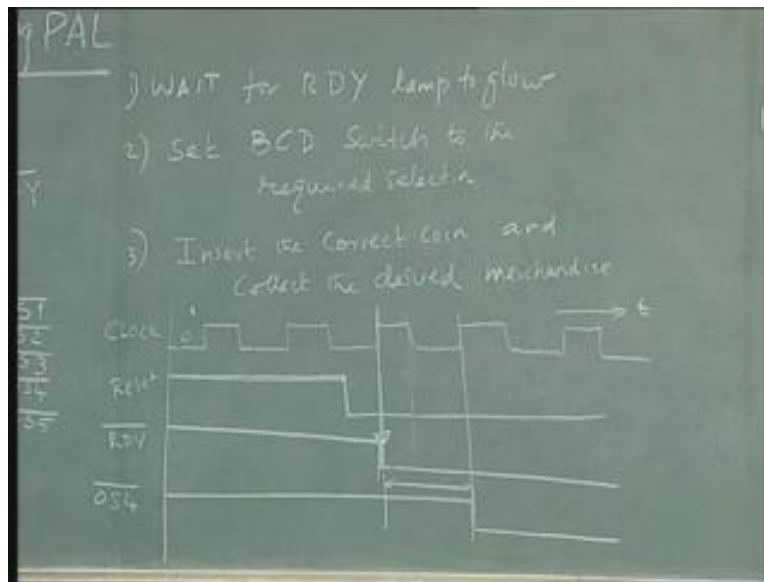 g PAL
1) WAIT for RDY lamp to glow
2) Set BCD Switch to the
required selectn
3) Insert the Correct Coin and
Collect the desired merchandise
Y
S1
S2
S3
S4
S5
t
Clock 0 1
Reset
RDY
OS4